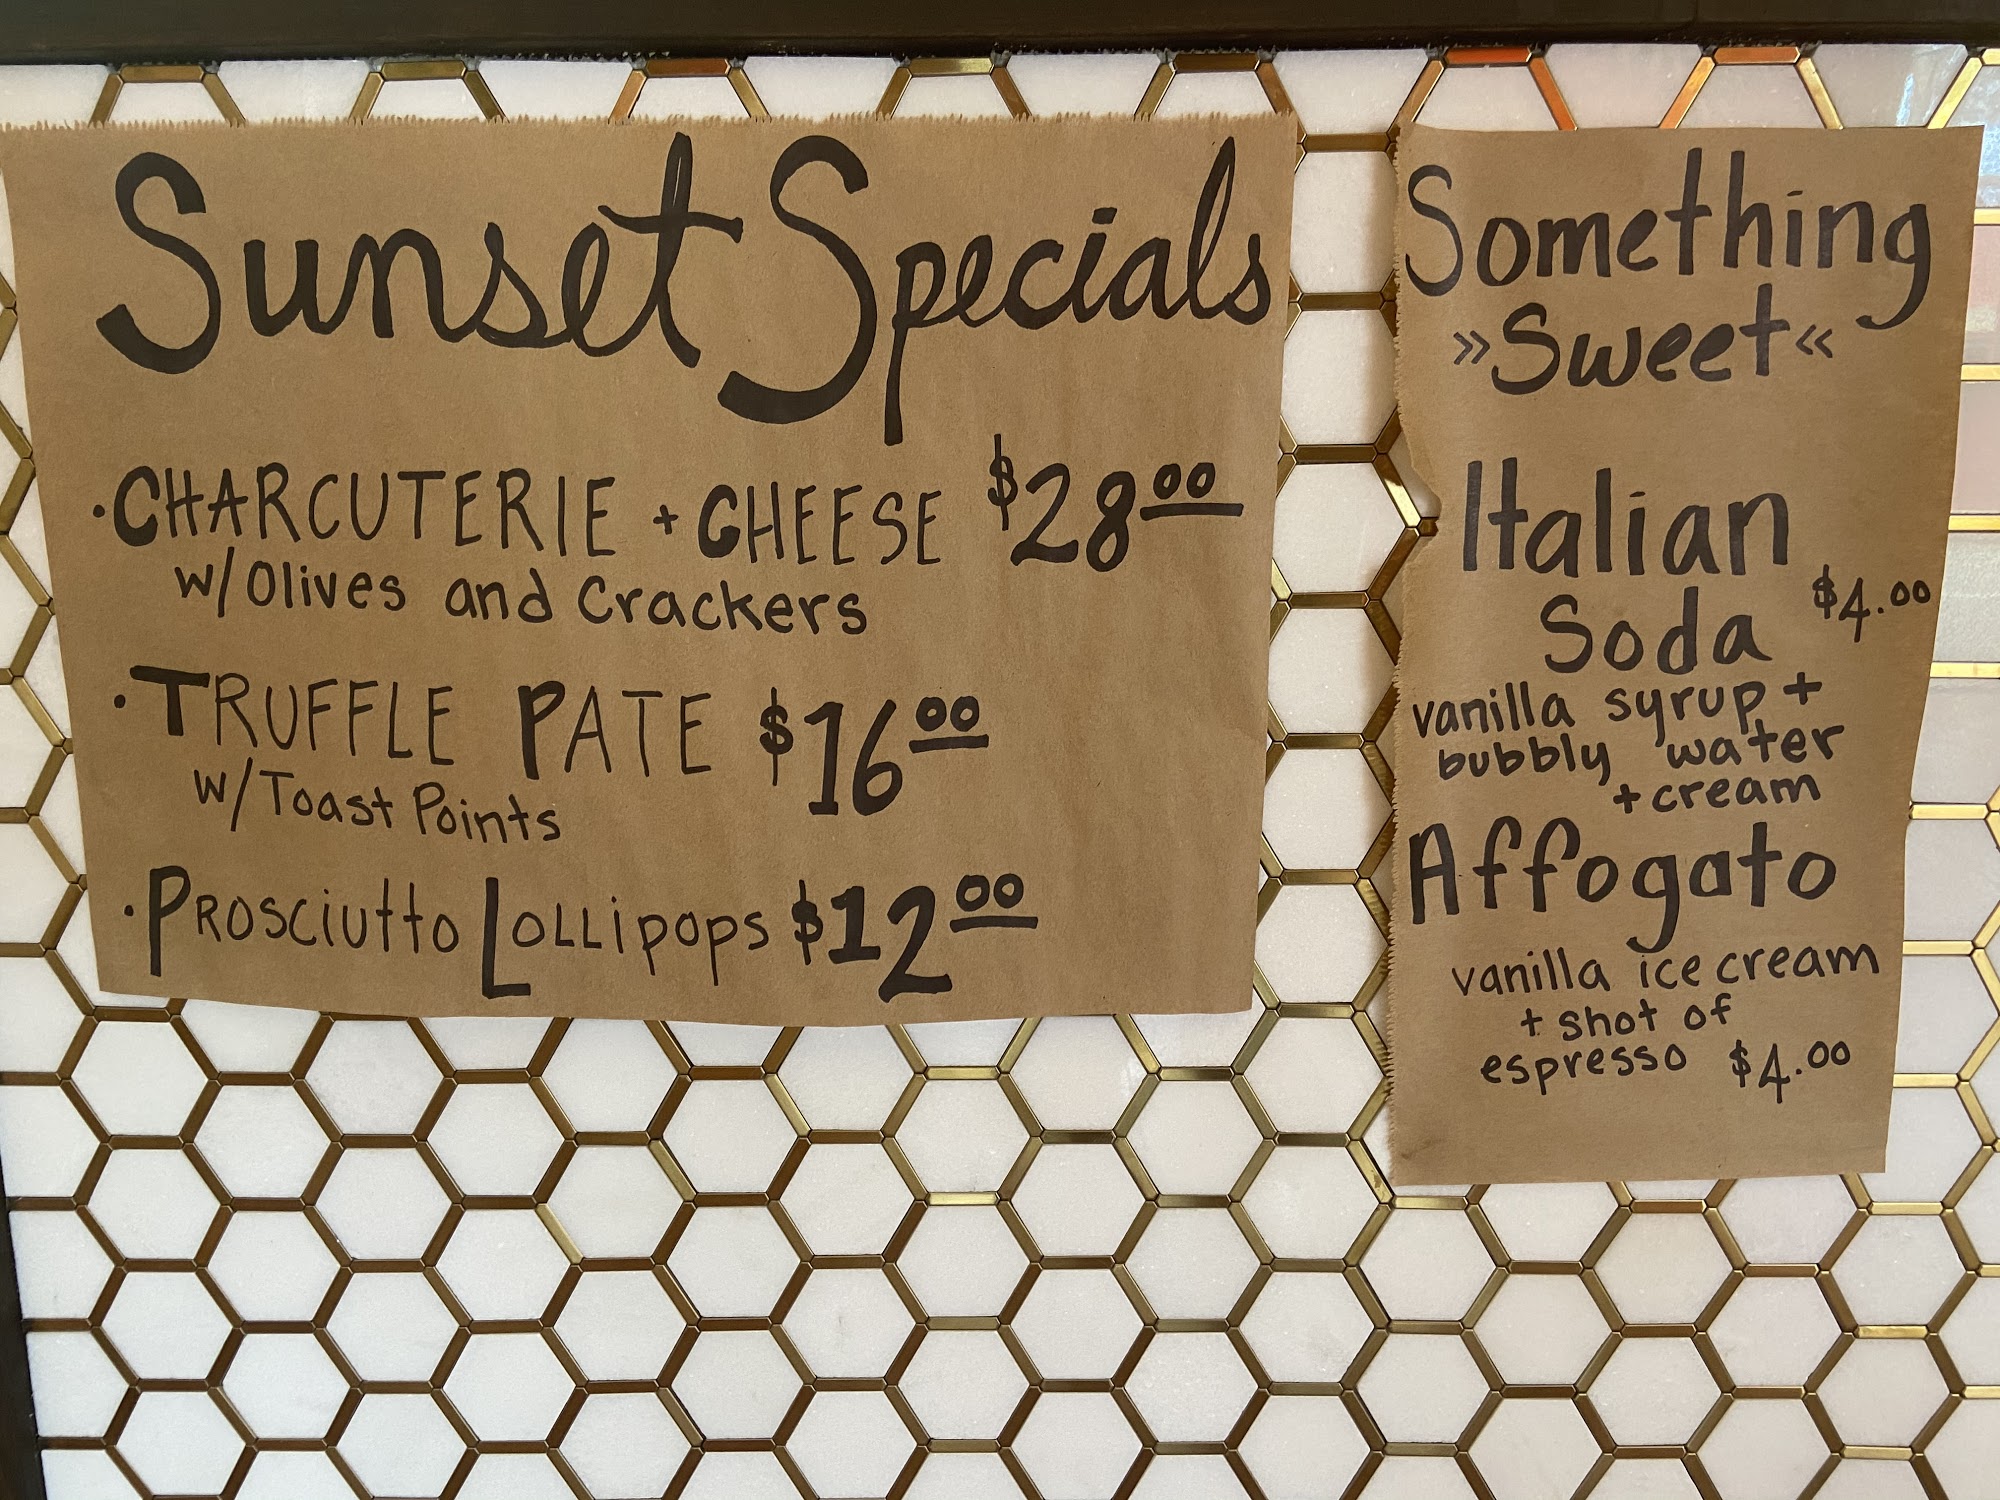 Sunset Specials
• CHARCUTERIE + CHEESE $28.00
w/Olives and Crackers
• TRUFFLE PATE $16.00
w/Toast Points
• PROSCIUTTO LOLLIPOPS $12.00
Something
»Sweet«
Italian
Soda $4.00
vanilla syrup +
bubbly water
+ cream
Affogato
vanilla ice cream
+ shot of
espresso $4.00